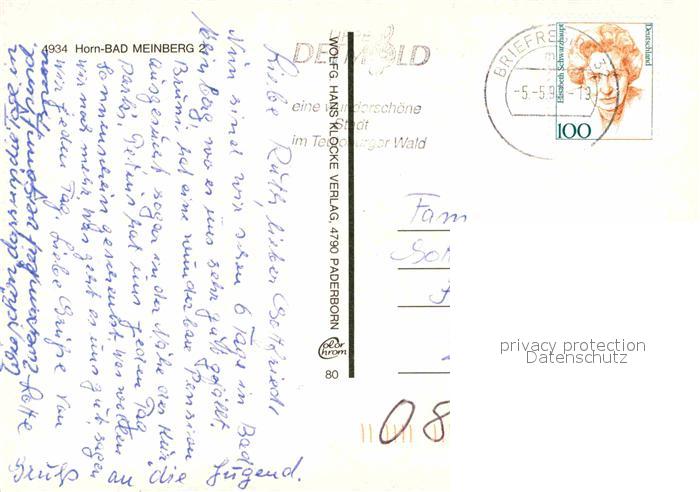 4934 Horn-BAD MEINBERG 2
Liebe Ruth, lieber Gottfried!
Nun sind wir schon 6 Tage in Bad
Meinberg, wo es uns sehr gut gefällt.
Bruni hat eine wunderbare Pension
ausgesucht sogar in der Nähe des Kur
parks. Petrus hat uns jeden Tag
Sonnenschein geschenkt, was wollen
wir noch mehr. Was geht es uns gut, sagen
wir jeden Tag. Liebe Grüße von
Gruß an die Jugend.
WOLFG. HANS KLOCKE VERLAG, 4790 PADERBORN
Color
chrom
80
DETMOLD
eine wunderschöne
Stadt
im Teutoburger Wald
BRIEFZE
-5.-5.9
Deutschland
Elisabeth Schwarzhaupt
100
Fam
08
privacy protection
Datenschutz